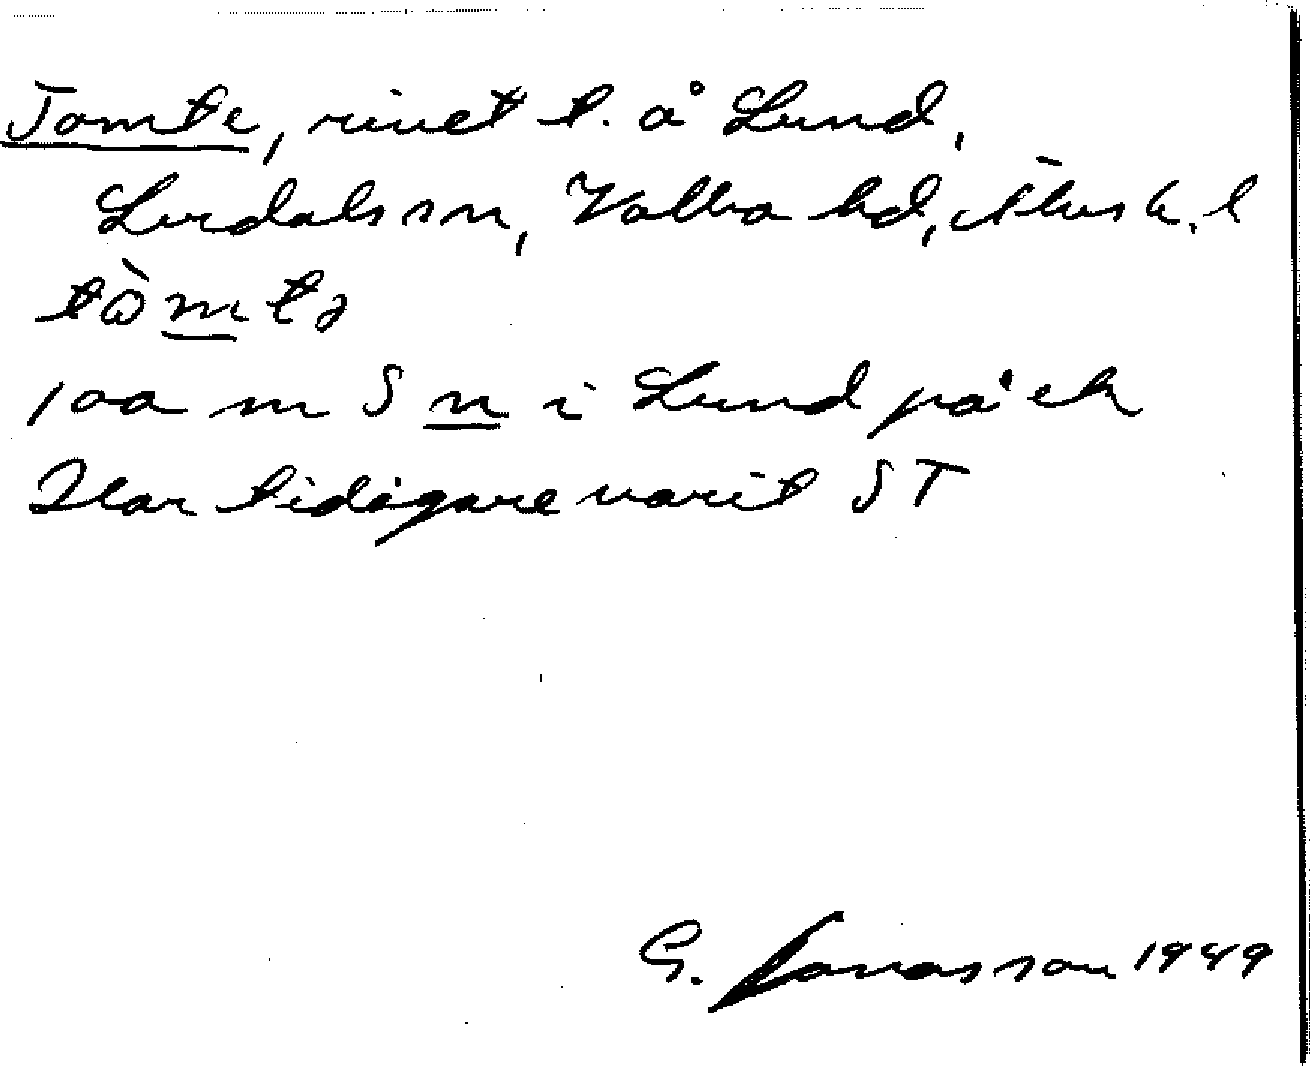 Tomte, rivet t. å Lund,
Lerdals sn, Valbo hd, Älvsb. l
tòmtə
100 m S n i Lund på ek
Har tidigare varit ST
G. Jonasson 1949